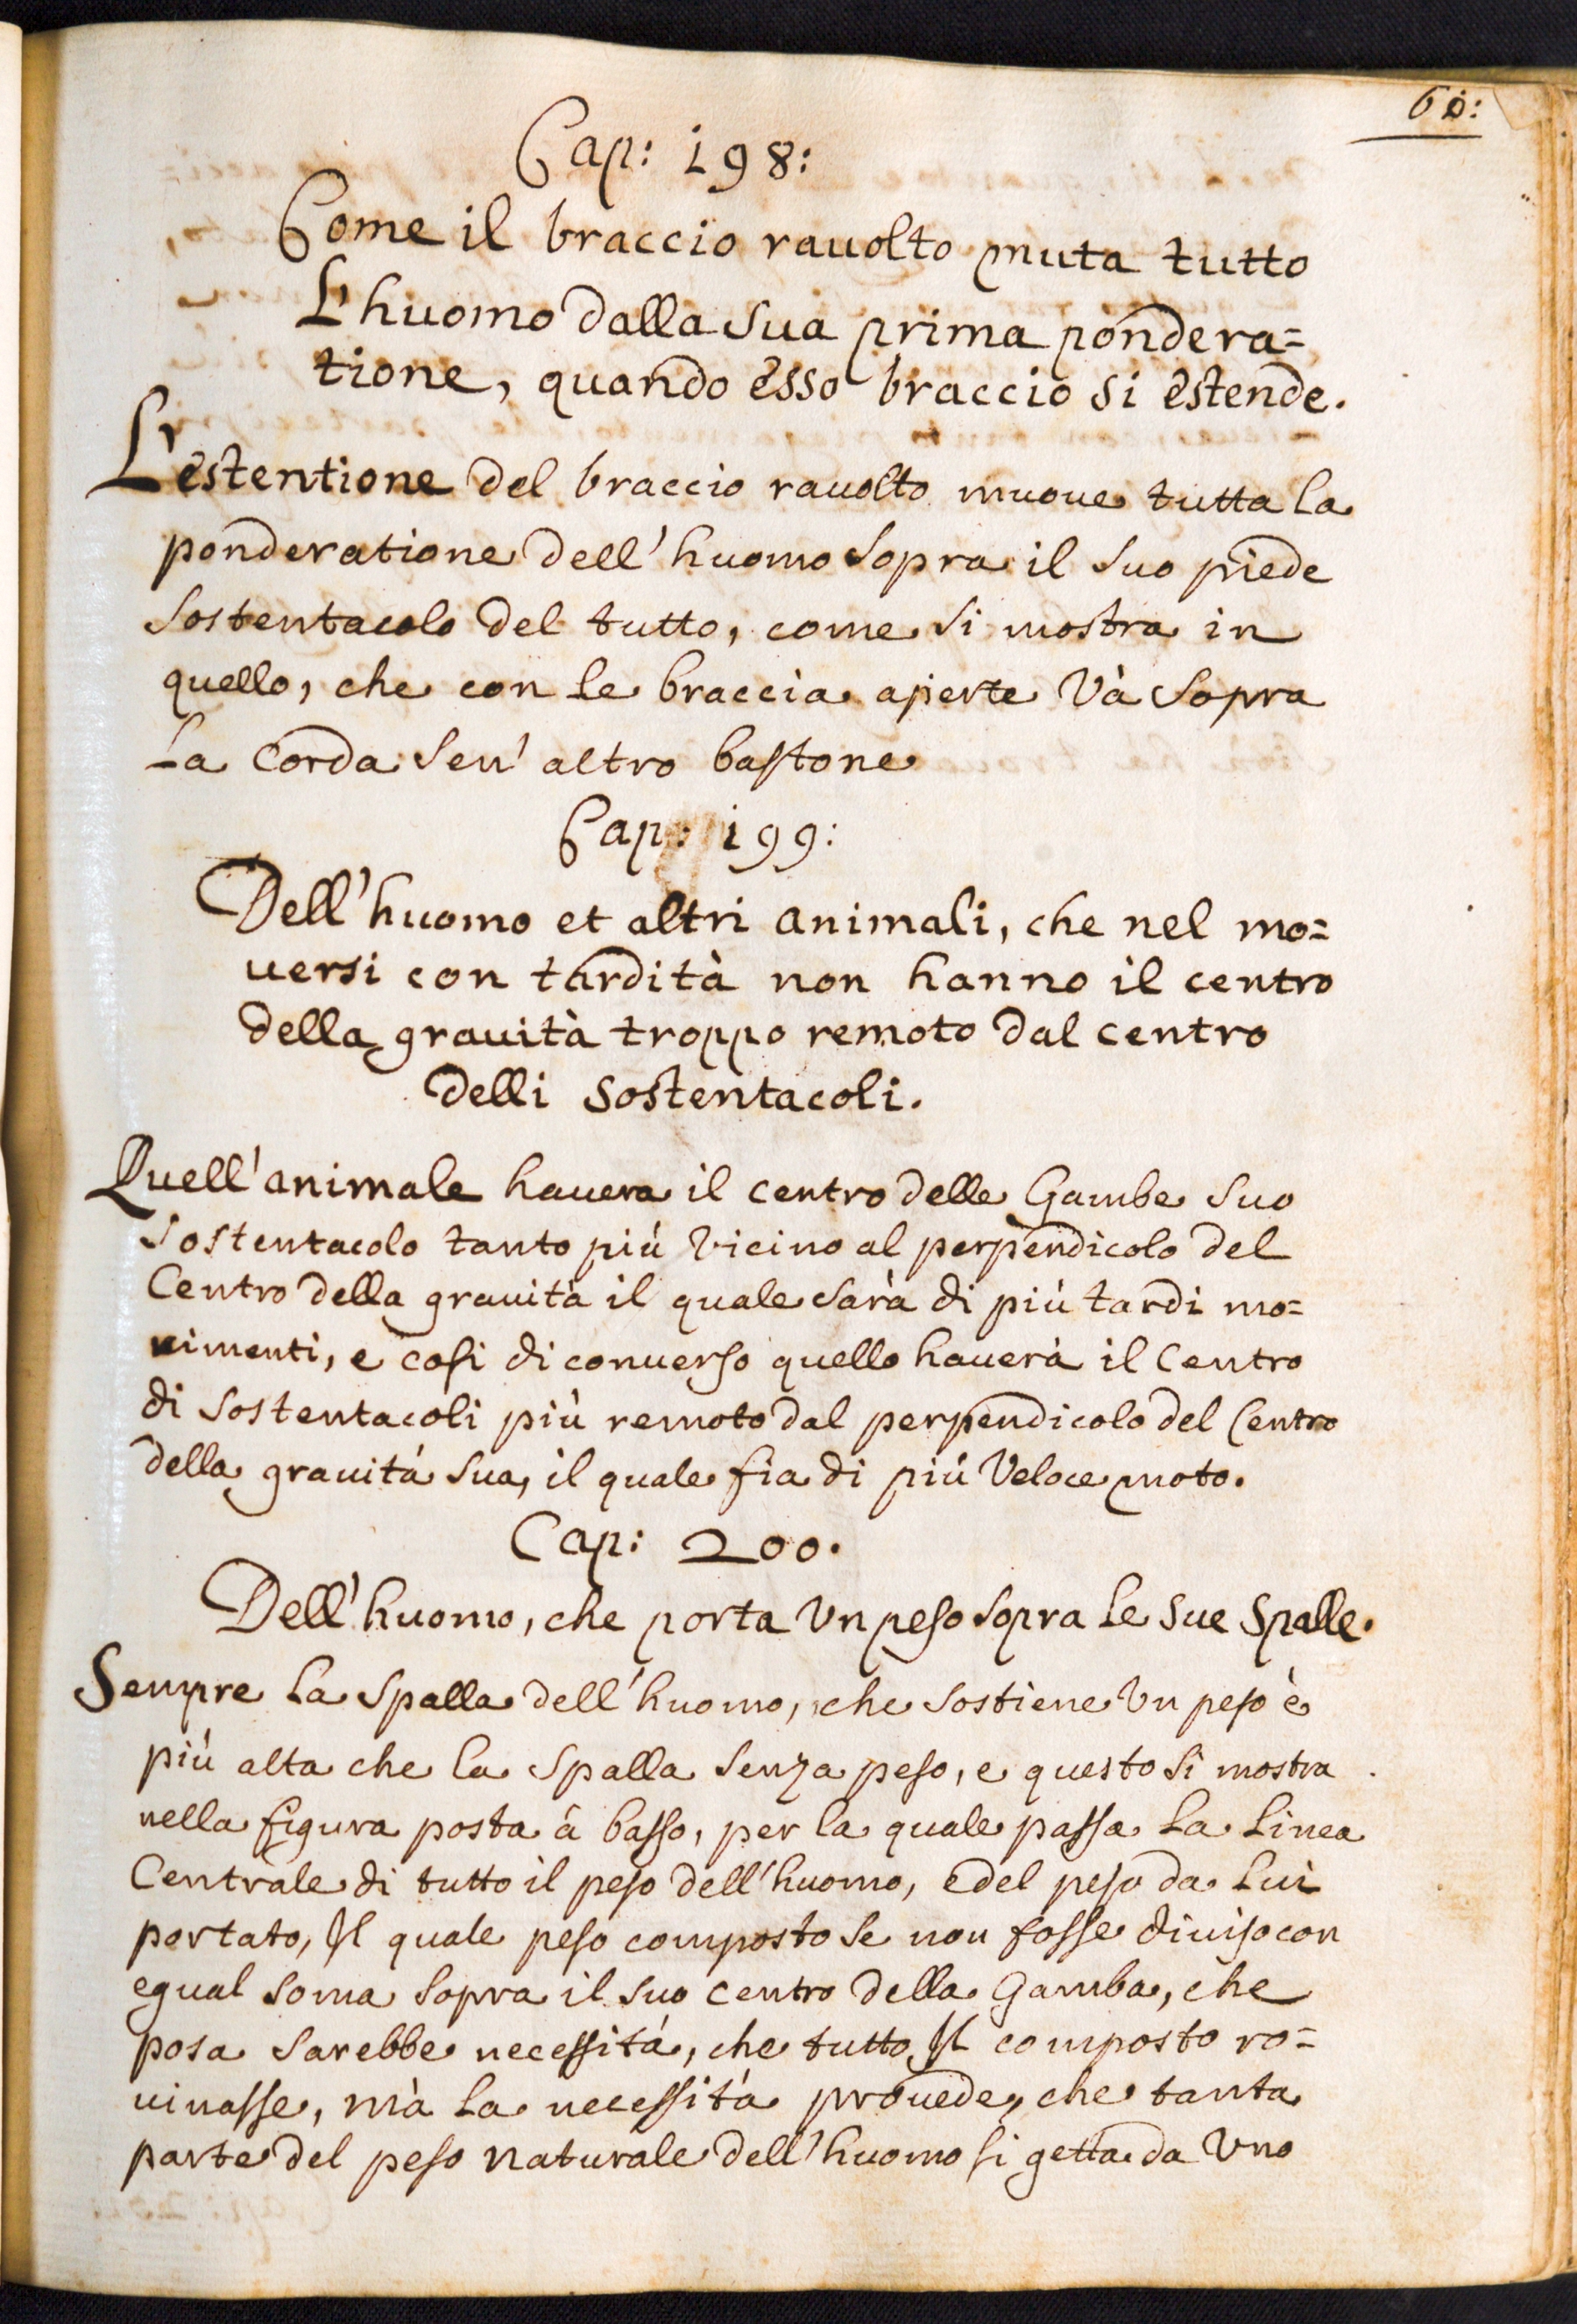 60:
Cap: 198:
Come il braccio rauolto muta tutto
L'huomo dalla sua prima pondera=
tione, quando esso braccio si estende.
L'estentione del braccio rauolto muoue tutta la
ponderatione dell'huomo sopra il suo piede
sostentacolo del tutto, come si mostra in
quello, che con le braccia aperte Và sopra
la Corda sen' altro bastone
Cap: 199:
Dell'huomo et altri animali, che nel mo=
uersi con tardità non hanno il centro
della grauità troppo remoto dal centro
delli sostentacoli.
Quell'animale hauera il centro delle Gambe suo
sostentacolo tanto più vicino al perpendicolo del
Centro della grauità il quale sarà di più tardi mo=
uimenti, e cosi di conuerso quello hauerà il Centro
di sostentacoli più remoto dal perpendicolo del Centro
della grauitá sua, il quale fia di più Veloce moto.
Cap: 200.
Dell'huomo, che porta Vn peso sopra le sue spalle.
Sempre la spalla dell'huomo, che sostiene Vn peso è
più alta che la spalla senza peso, e questo si mostra
nella figura posta á basso, per la quale passa la linea
Centrale di tutto il peso dell'huomo, e del peso da lui
portato, Il quale peso composto se non fosse diuiso con
egual soma sopra il suo centro della Gamba, che
posa sarebbe necessitá, che tutto Il composto ro=
uinasse, mà la necessità prouede, che tanta
parte del peso naturale dell'huomo si getta da Vno